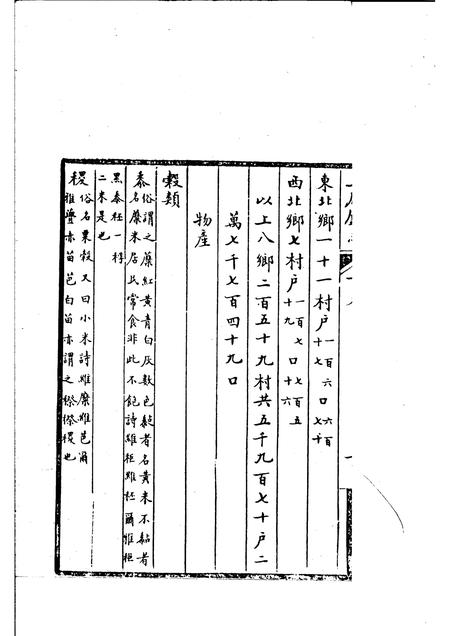 東北鄉一十一村戶一百六十七口六百七十
西北鄉七村戶一百七十九口七百五十六
以上八鄉二百五十九村共五千九百七十戶二
萬七千七百四十九口
物產
穀類
黍俗謂之糜紅黃青白灰數色黏者名黃米不黏者
名糜米居民常食非此不飽詩維秬維秠爾雅秬
黑黍秠一稃
二米是也
稷俗名粟穀又曰小米詩維糜維芑爾
雅虋赤苗芑白苗亦謂之穄穄稷也